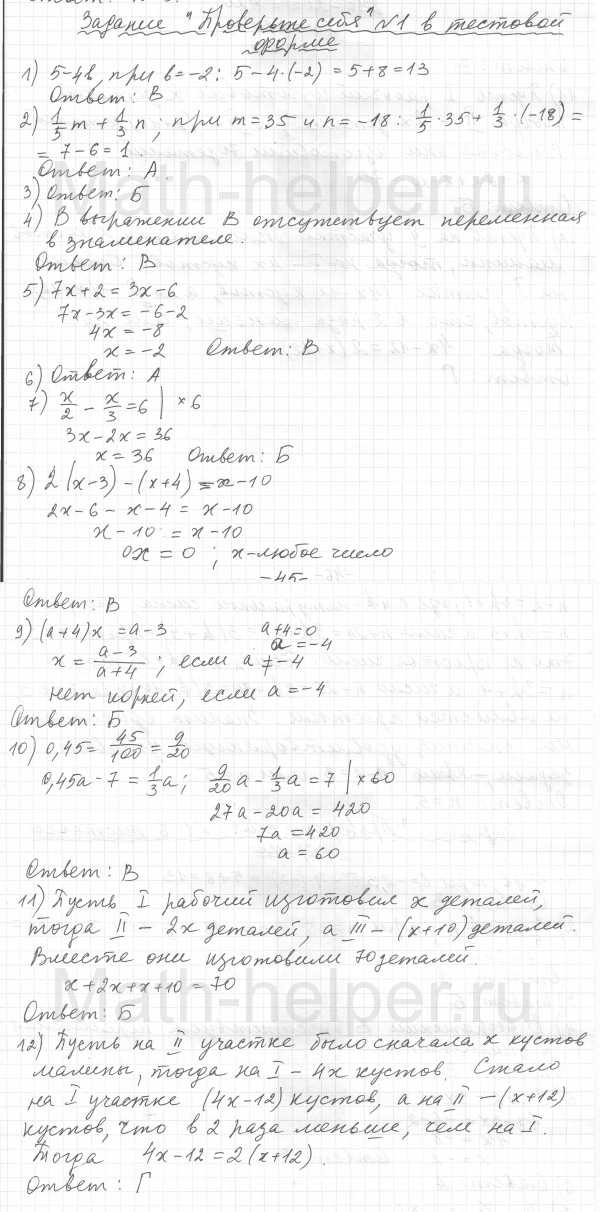 Задание "Проверьте себя" №1 в тестовой
форме
1) 5-4в, при в=-2: 5-4·(-2) = 5+8=13
Ответ: В
2) 1/5 m + 1/3 n; при m=35 и n=-18: 1/5·35+ 1/3·(-18)=
= 7-6=1
Ответ: А
3) Ответ: Б
4) В выражении В отсутствует переменная
в знаменателе.
Ответ: В
5) 7x+2=3x-6
7x-3x=-6-2
4x=-8
x=-2 Ответ: В
6) Ответ: А
7) x/2 - x/3 =6 | ×6
3x-2x=36
x=36 Ответ: Б
8) 2(x-3)-(x+4)=x-10
2x-6-x-4=x-10
x-10=x-10
0x=0; x-любое число
-45-
Ответ: В
9) (a+4)x=a-3 a+4=0
a=-4
x= (a-3)/(a+4); если a≠-4
нет корней, если a=-4
Ответ: Б
10) 0,45= 45/100 = 9/20
0,45a-7= 1/3 a; 9/20 a- 1/3 a=7 | ×60
27a-20a=420
7a=420
a=60
Ответ: В
11) Пусть I рабочий изготовил x деталей,
тогда II - 2x деталей, а III - (x+10) деталей.
Вместе они изготовили 70 деталей.
x+2x+x+10=70
Ответ: Б
12) Пусть на II участке было сначала x кустов
малины, тогда на I - 4x кустов. Стало
на I участке (4x-12) кустов, а на II - (x+12)
кустов, что в 2 раза меньше, чем на I.
Тогда 4x-12=2(x+12).
Ответ: Г
Math-helper.ru
Math-helper.ru